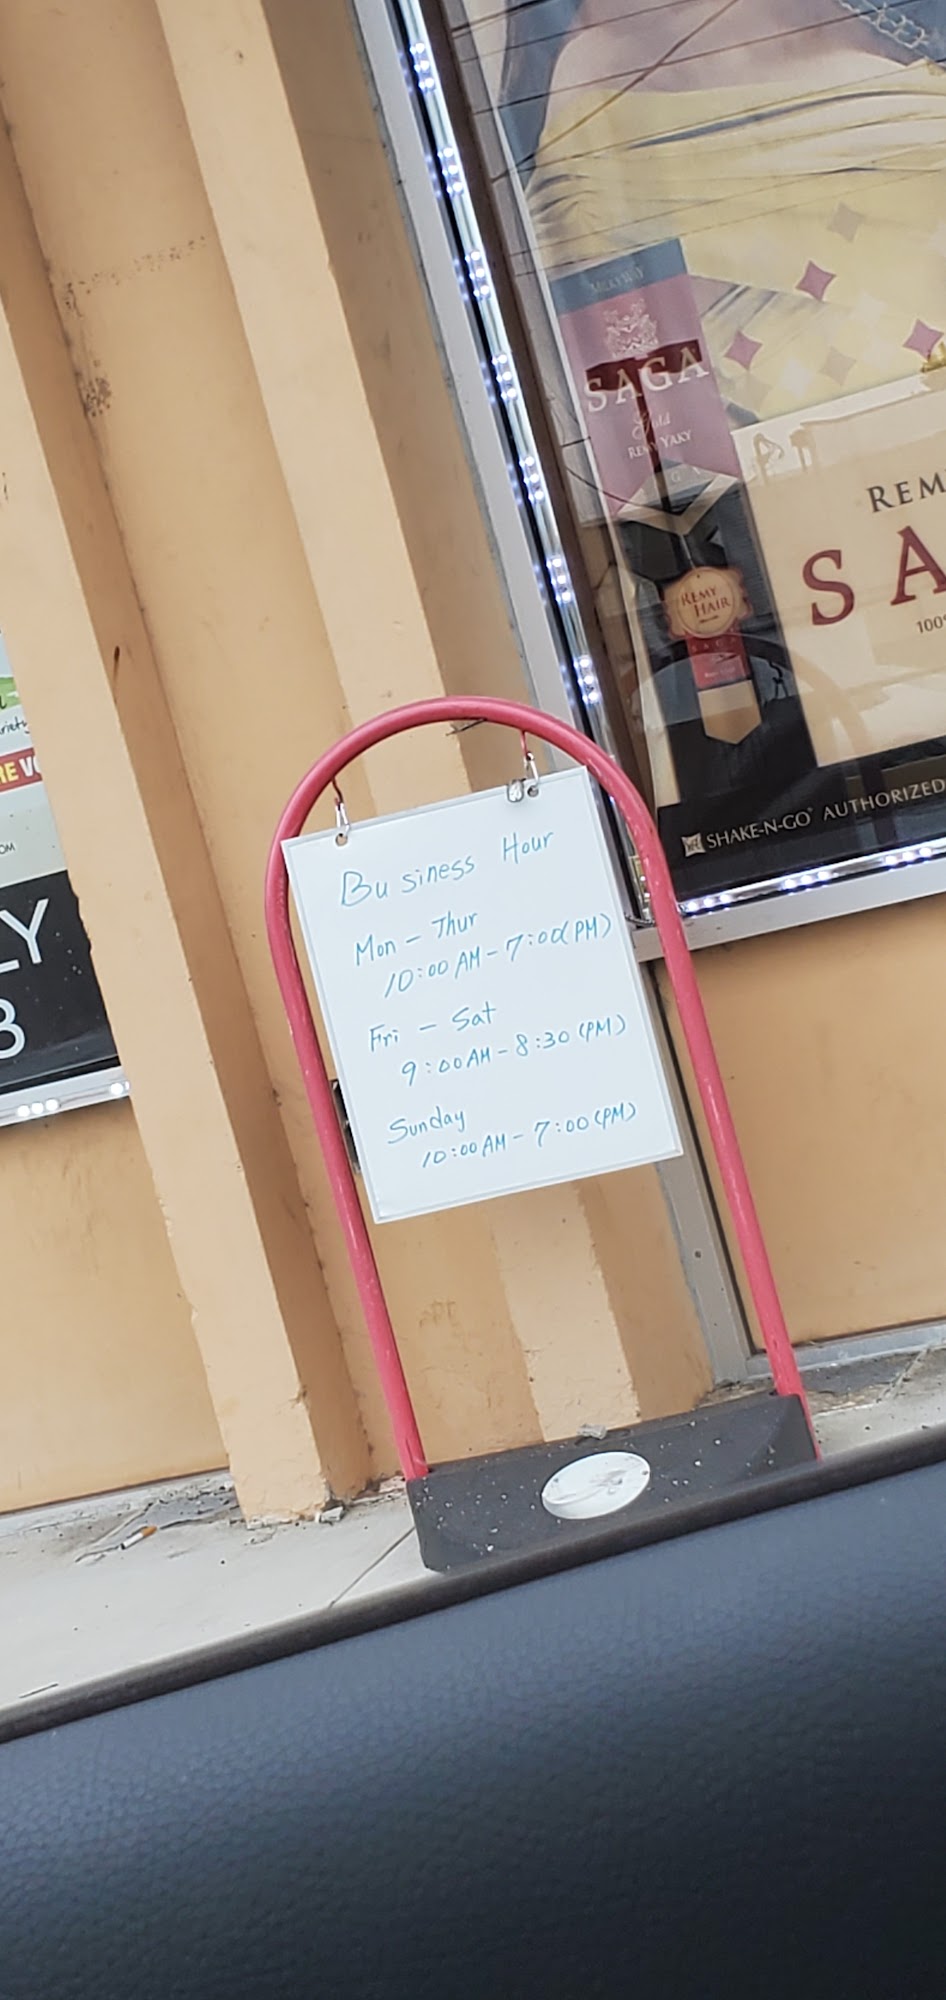 MILKYWAY
SAGA
Gold
REMY YAKY
REM
SA
100%
REMY
HAIR
SAGA
SHAKE-N-GO® AUTHORIZED
RE
OM
LY
Business Hour
Mon - Thur
10:00 AM - 7:00(PM)
Fri - Sat
9:00 AM - 8:30 (PM)
Sunday
10:00 AM - 7:00 (PM)